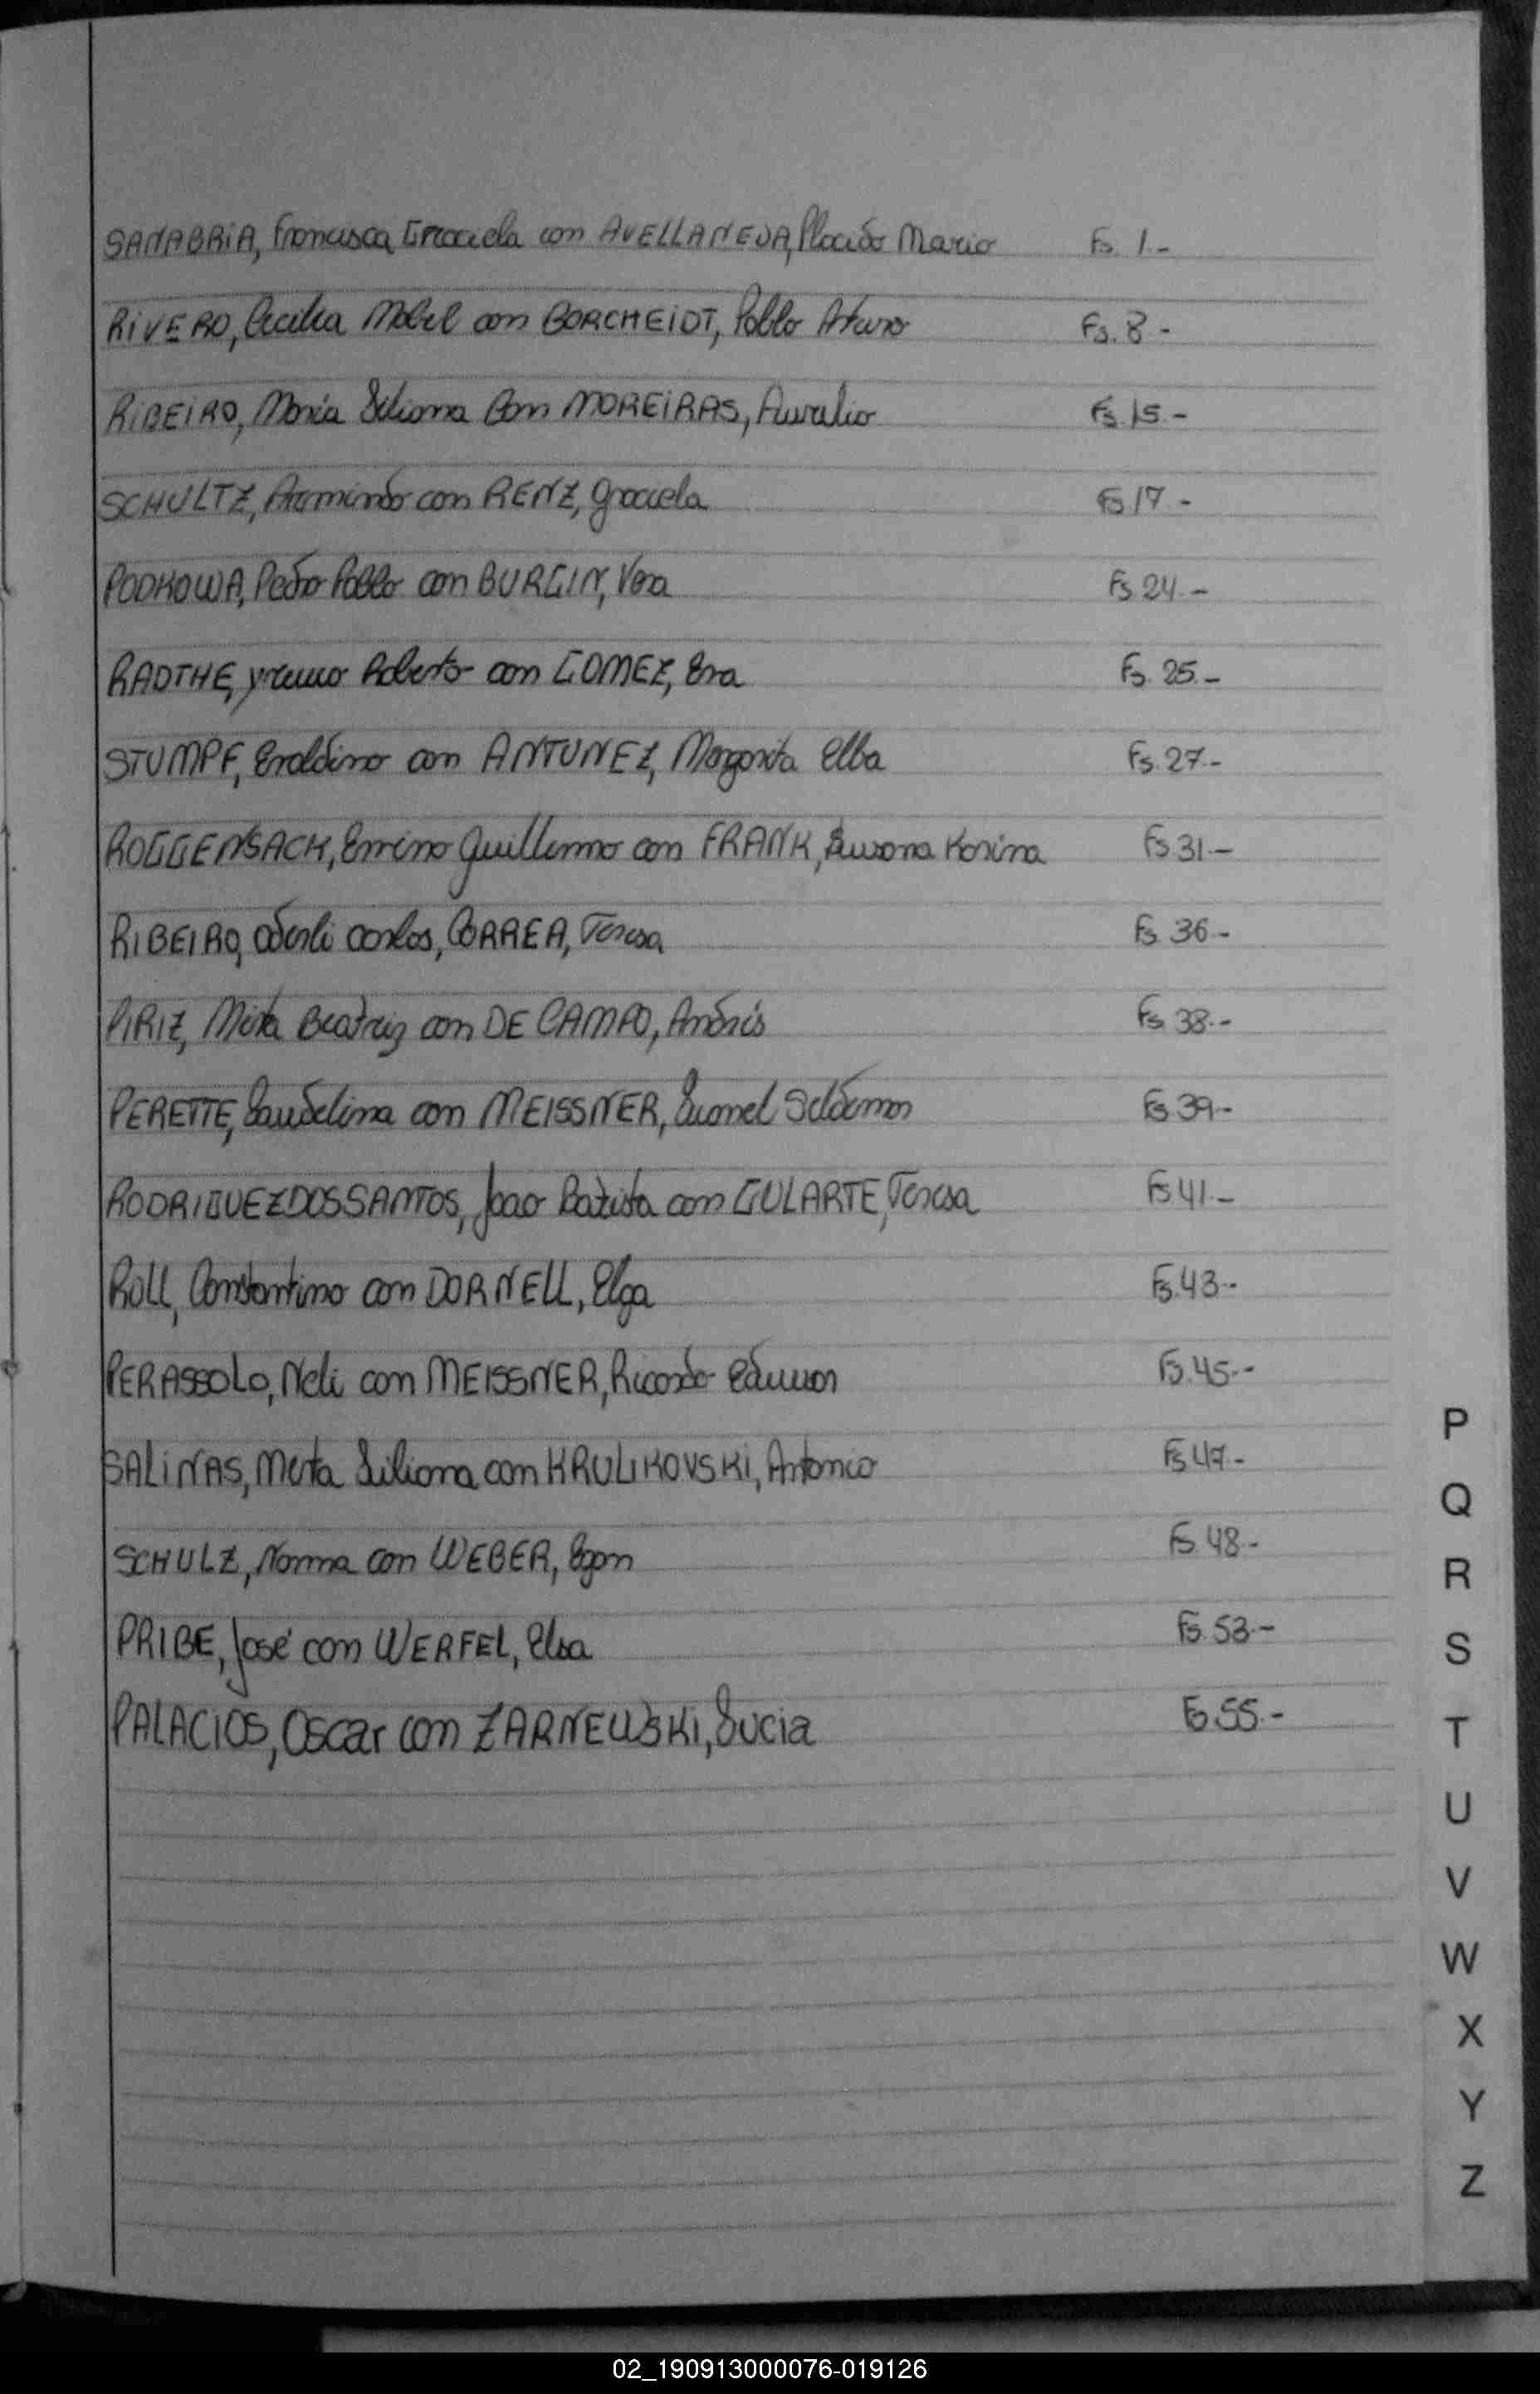 SANABRIA, Francisca Graciela con AVELLANEDA, Placido Mario Fs. 1.-
RIVERO, Cecilia Mabel con BORCHEIDT, Pablo Arturo Fs. 8.-
RIBEIRO, Maria Liliana Con MOREIRAS, Aurelio Fs. 15.-
SCHULTZ, Armindo con RENZ, Graciela Fs. 17.-
PODKOWA, Pedro Pablo con BURGIN, Vera Fs. 24.-
RADTHE, Roberto con GOMEZ, Eva Fs. 25.-
STUMPF, Eraldino con ANTUNEZ, Margarita Elba Fs. 27.-
ROGGENSACK, Guillermo con FRANK, Susana Karina Fs. 31.-
RIBEIRO, Carlos, CORREA, Teresa Fs. 36.-
PIRIZ, Mirta Beatriz con DE CAMPO, Andrés Fs. 38.-
PERETTE, Laudelina con MEISSNER, Fs. 39.-
RODRIGUEZ DOS SANTOS, Joao Batista con GULARTE, Teresa Fs. 41.-
ROLL, Constantino con DORNELL, Elga Fs. 43.-
PERASSOLO, Neli con MEISSNER, Ricardo Fs. 45.-
SALINAS, Mirta Liliana con KRULIKOVSKI, Antonio Fs. 47.-
SCHULZ, Norma con WEBER, Egon Fs. 48.-
PRIBE, José con WERFEL, Elsa Fs. 53.-
PALACIOS, Oscar con ZARNEWSKI, Lucia Fs. 55.-
P
Q
R
S
T
U
V
W
X
Y
Z
02_190913000076-019126